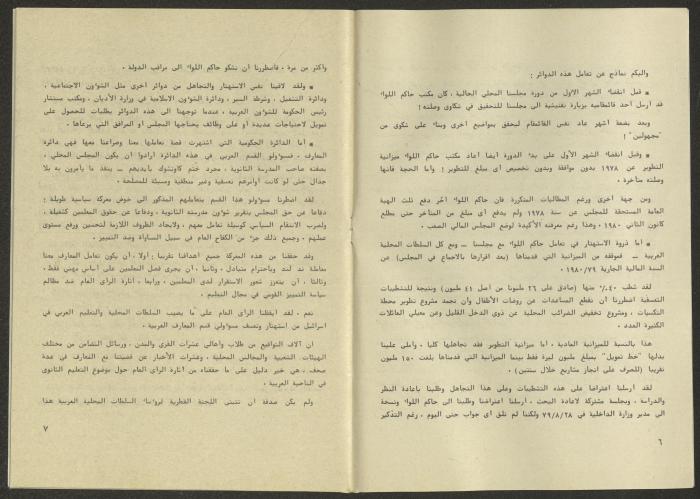 واليكم نماذج عن تعامل هذه الدوائر :
■ قبل انقضاء الشهر الاول من دورة مجلسنا المحلي الحالية ، كان مكتب حاكم اللواء
قد أرسل أحد قائمقاميه بزيارة تفتيشية الى مجلسنا للتحقيق في شكوى وصلته !
وبعد بضعة أشهر عاد نفس القائمقام ليحقق بمواضيع أخرى وبناء على شكوى من
"مجهولين" !
■ وقبل انقضاء الشهر الأول على بدء الدورة أيضا أعاد مكتب حاكم اللواء ميزانية
التطوير عن ١٩٧٨ بدون موافقة وبدون تخصيص أي مبلغ للتطوير ! وأما الحجة فانها
وصلته متأخرة .
ومن جهة أخرى ورغم المطالبات المتكررة فان حاكم اللواء أخّر دفع ثلث الهبة
العامة المستحقة للمجلس عن سنة ١٩٧٨ ولم يدفع أي مبلغ من المتأخر حتى مطلع
كانون الثاني ١٩٨٠ . وهذا رغم معرفته الأكيدة لوضع المجلس المالي الصعب .
■ أما ذروة الاستهتار في تعامل حاكم اللواء مع مجلسنا – ومع كل السلطات المحلية
العربية – فموقفه من الميزانية التي قدمناها (بعد اقرارها بالاجماع في المجلس) عن
السنة المالية الجارية ١٩٨٠/٧٩ .
لقد شطب ٤٠٪ منها (صادق على ٢٦ مليونا من أصل ٤١ مليون) ونتيجة للتشطيبات
التعسفية اضطررنا أن نقطع المساعدات عن روضات الأطفال وأن نجمد مشروع تطوير محطة
الكسارات ، ومشروع تخفيض الضرائب المحلية عن ذوي الدخل القليل وعن معيلي العائلات
الكثيرة العدد .
هذا بالنسبة للميزانية العادية . أما ميزانية التطوير فقد تجاهلها كليا ، وأملى علينا
بدلها "خط تمويل" بمبلغ مليون ليرة فقط بينما الميزانية التي قدمناها بلغت ١٥٠ مليون
تقريبا (للصرف على انجاز مشاريع خلال سنتين) .
لقد أرسلنا اعتراضا على هذه التشطيبات وعلى هذا التجاهل وطلبنا باعادة النظر
والدراسة ، وبجلسة مشتركة لاعادة البحث . أرسلنا اعتراضنا وطلبنا الى حاكم اللواء ونسخة
الى مدير وزارة الداخلية في ٧٩/٨/٢٨ ولكننا لم نلق أي جواب حتى اليوم ، رغم التذكير
٦
وأكثر من مرة . فاضطررنا أن نشكو حاكم اللواء الى مراقب الدولة .
■ ولقد لاقينا نفس الاستهتار والتجاهل من دوائر أخرى مثل الشؤون الاجتماعية ،
ودائرة التشغيل ، وشرطة السير ، ودائرة الشؤون الاسلامية في وزارة الأديان ، ومكتب مستشار
رئيس الحكومة للشؤون العربية ، عندما توجهنا الى هذه الدوائر بطلبات للحصول على
تمويل لاحتياجات عديدة أو على وظائف يحتاجها المجلس أو المرافق التي يرعاها .
■ أما الدائرة الحكومية التي اشتهرت قصة تعاملها معنا وصراعنا معها فهي دائرة
المعارف . فمسؤولو القسم العربي في هذه الدائرة أرادوا أن يكون المجلس المحلي ،
بصفته صاحب المدرسة الثانوية ، مجرد ختم كاوتشوك بأيديهم – ينفذ ما يأمرون به بلا
جدال حتى لو كانت أوامرهم تعسفية وغير منطقية ومسيئة للمصلحة .
لقد اضطرنا مسؤولو هذا القسم بتعاملهم المذكور الى خوض معركة سياسية طويلة !
دفاعا عن حق المجلس بتقرير شؤون مدرسته الثانوية ، ودفاعا عن حقوق المعلمين كشغيلة ،
ولضرب الانتقام السياسي كوسيلة تعامل معهم ، ولايجاد الظروف اللازمة لتحسين ورفع مستوى
عملهم . وجميع ذلك جزء من الكفاح العام في سبيل المساواة وضد التمييز .
وقد حققنا من هذه المعركة جميع أهدافنا تقريبا : أولا ، أن يكون تعامل المعارف معنا
معاملة ند لند وباحترام متبادل ، وثانيا ، أن يجري فصل المعلمين على أساس مهني فقط ،
وثالثا ، أن يتعزز شعور الاستقرار لدى المعلمين ، ورابعا ، اثارة الرأي العام ضد مظالم
سياسة التمييز القومي في مجال التعليم .
نعم ، لقد أيقظنا الرأي العام على ما يصيب السلطات المحلية والتعليم العربي في
اسرائيل من استهتار وتعسف مسؤولي قسم المعارف العربية .
ان آلاف التواقيع من طلاب وأهالي عشرات القرى والمدن ، ورسائل التضامن من مختلف
الهيئات الشعبية والمجالس المحلية ، وعشرات الأخبار عن قضيتنا مع المعارف في عدة
صحف ، هي خير دليل على ما حققناه من اثارة الرأي العام حول موضوع التعليم الثانوي
في الناحية العربية .
ولم يكن صدفة أن تتبنى اللجنة القطرية لرؤساء السلطات المحلية العربية هذا
٧